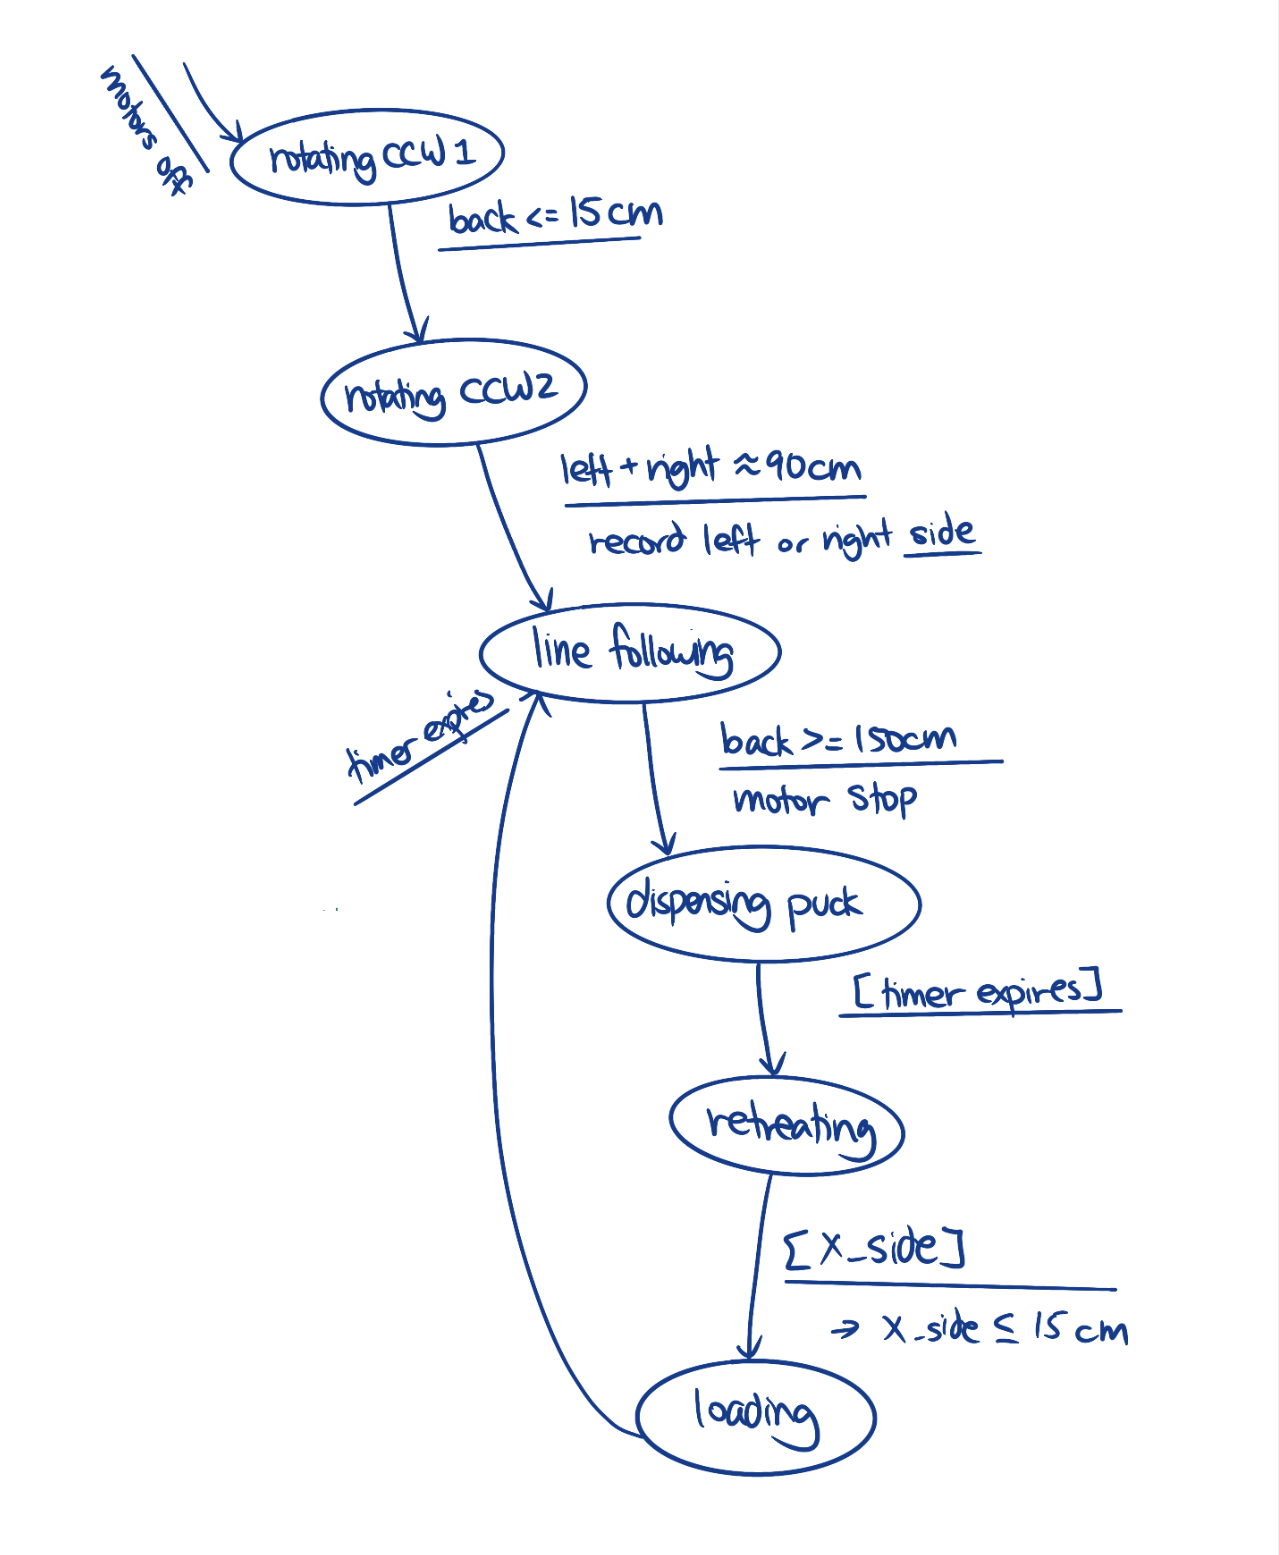 motors off
rotating CCW 1
back <= 15 cm
rotating CCW 2
left + right ≈ 90cm
record left or right side
line following
timer expires
back >= 150cm
motor stop
dispensing puck
[timer expires]
retreating
[X_side]
→ X_side ≤ 15 cm
loading